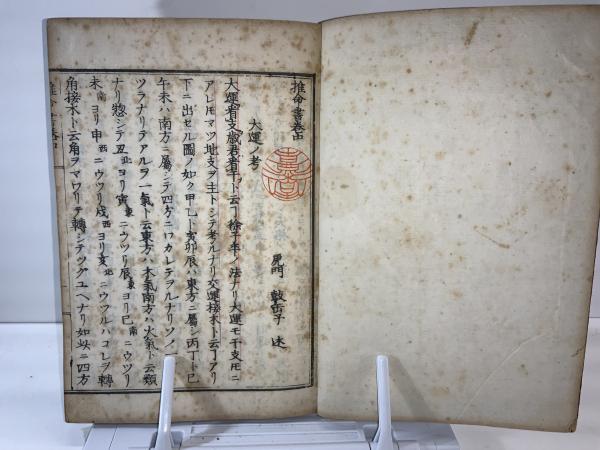 推命書巻中
尾門 鼓岳子 述
大運ノ考
大運看支歳君看干ト云丁徐子平ノ法ナリ大運モ干支モニ
アレ𪜈マツ地支ヲ主トシテ考ルナリ交運接木ト云丁アリ
下ニ出セル圖ノ如ク甲乙ト寅卯辰ハ東方ニ屬シ丙丁ト巳
午未ハ南方ニ屬シテ四方ニワカレテヲルナリソノ一
ツラナリテアルヲ一氣ト云東方ハ木氣南方ハ火氣ト云類
ナリ惣シテ丑北ヨリ寅東ニウツリ辰東ヨリ巳南ニウツリ
未南ヨリ申西ニウツリ戌西ヨリ亥北ニウツルハコレヲ轉
角接木ト云角ヲマワリテ轉シテツグユヘナリ如此ニ四方